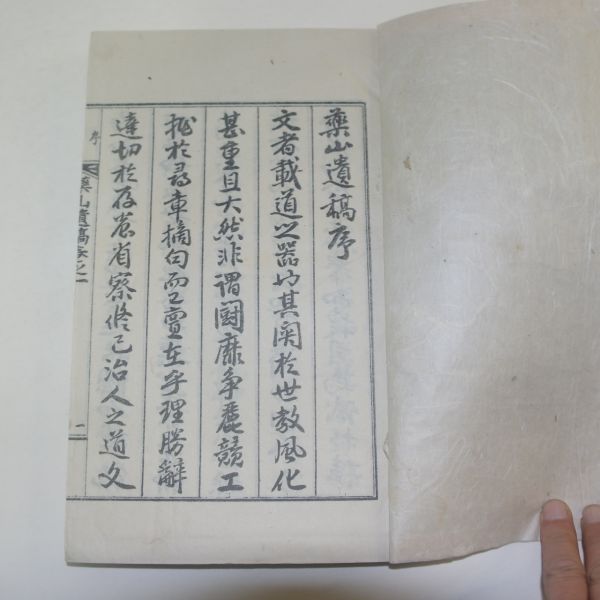 藥山遺稿序
文者載道之器也其関於世教風化
甚重且大然非謂鬪靡争麗競工
拙於尋章摘句而已寔在乎理勝辭
達切於存養省察修己治人之道文
序
藥山遺稿卷之一
一